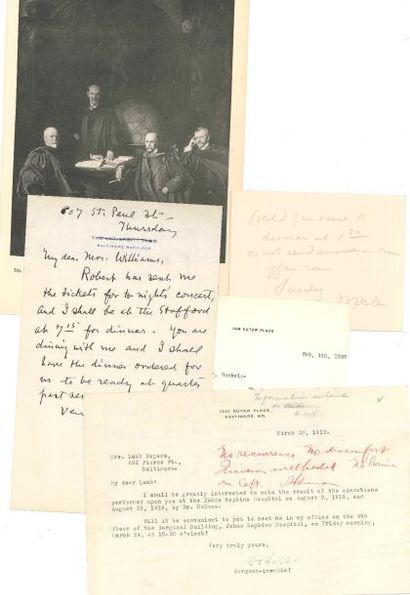 807 St. Paul St.
Thursday
THE UNIVERSITY CLUB
BALTIMORE MARYLAND
My dear Mrs. Williams,
Robert has sent me
the tickets for to night's concert,
and I shall be at the Stafford
at 7 15 for dinner. You are
dining with me and I shall
have the dinner ordered for
us to be ready at quarter
past
Will you come to
dinner at 1
do not send answer
you can
Sunday
1208 EUTAW PLACE
Feb. 4th, 1907
Information entered
1201 EUTAW PLACE,
BALTIMORE, MD.
March 20, 1922.
Mrs. Leah Rogers,
Baltimore.
My dear Leah:
No recurrence No discomfort
Incision well healed
I shall be greatly interested to note the result of the operations
performed upon you at the Johns Hopkins Hospital on August 2, 1919, and
August 25, 1919, by Dr. Holman.
Will it be convenient to you to meet me in my office on the 4th
floor of the Surgical Building, Johns Hopkins Hospital, on Friday morning,
March 24, at 10.30 o'clock?
Very truly yours,
Surgeon-in-chief